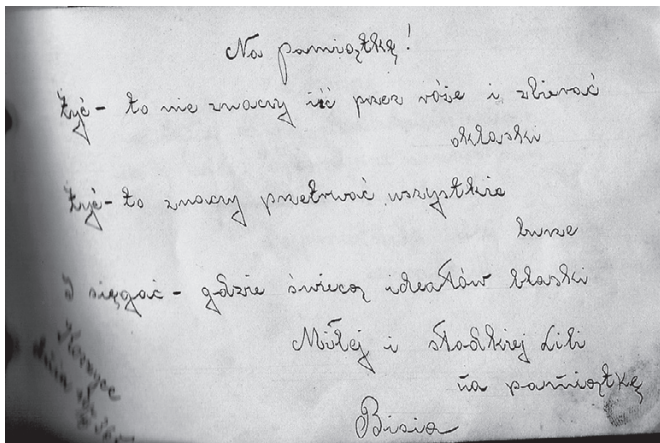 Na pamiątkę!
Żyć - to nie znaczy iść przez róże i zbierać
oklaski
Żyć - to znaczy przetrwać wszystkie
burze
I sięgać - gdzie świecą ideałów blaski
Miłej i słodkiej Lili
na pamiątkę
Bisia
Korzec